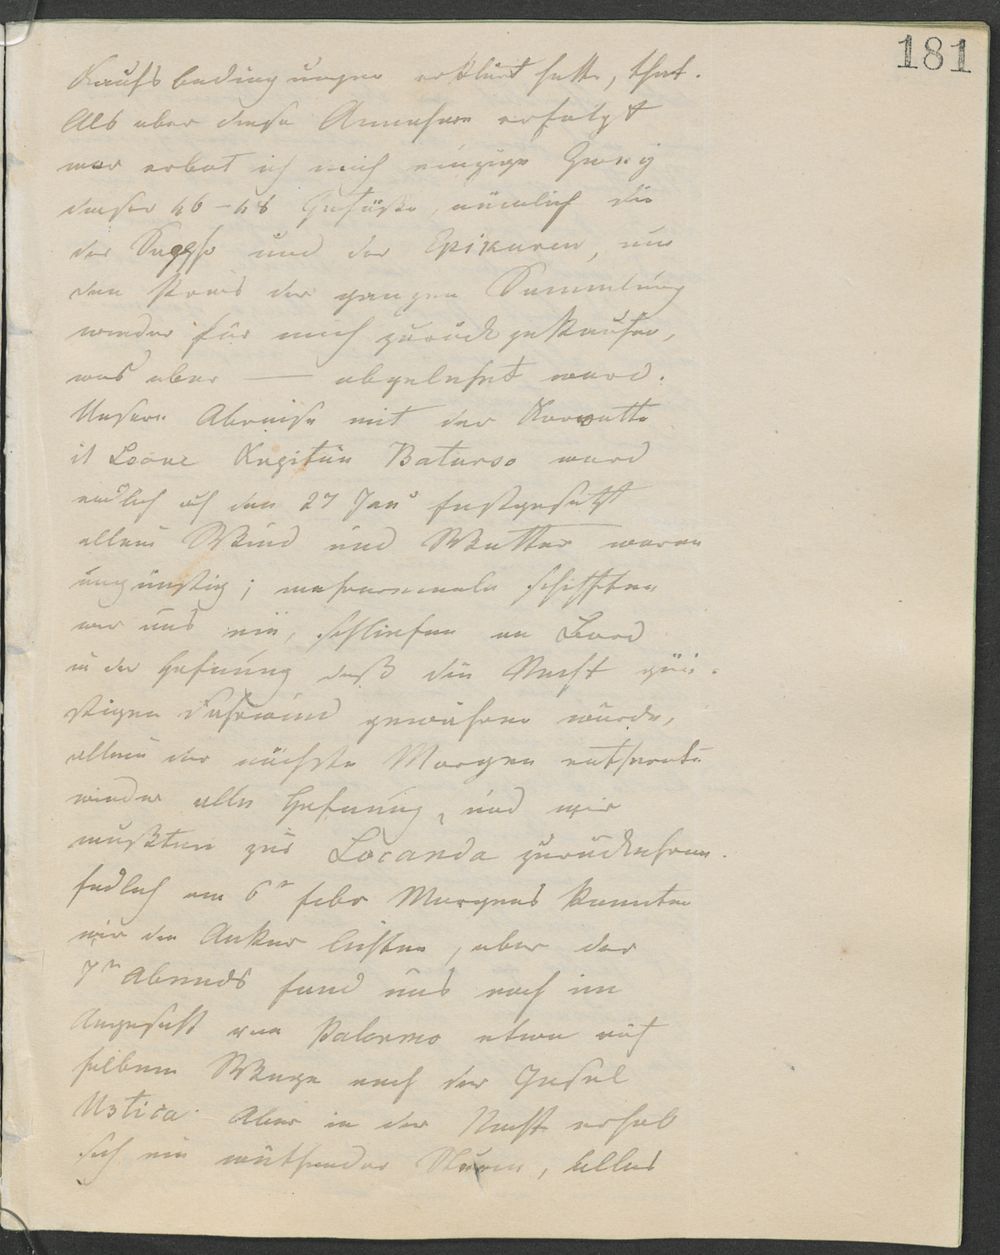 181
Kaufsbedingungen erklärt hatte, that.
Als aber diese Annahme erfolgt
war erbot ich mich einzige zwey
dieser 46-48 Gefäße, nämlich die
der Sappho und der Epikuren, um
den Preis der ganzen Sammlung
wieder für mich zurück zu kaufen,
was aber — abgelehnt ward.
Unsere Abreise mit der Korvette
il Leone Kapitän Baturso ward
endlich auf den 27 Janr festgesetzt
allein Wind und Wetter waren
ungünstig; mehreremale schifften
wir uns ein, schliefen an Bord
in der Hofnung daß die Nacht gün-
stigen Fahrwind gewähren würde,
allein der nächste Morgen
wieder alle Hofnung, und wir
mußten zur Locanda zurückkehren.
Endlich am 6n Febr Morgens konnten
wir die Anker lichten, aber der
7n Abends fand uns noch im
Angesicht von Palermo etwa auf
halbem Wege nach der Insel
Ustica. Aber in der Nacht erhob
sich ein wüthender Sturm, alles